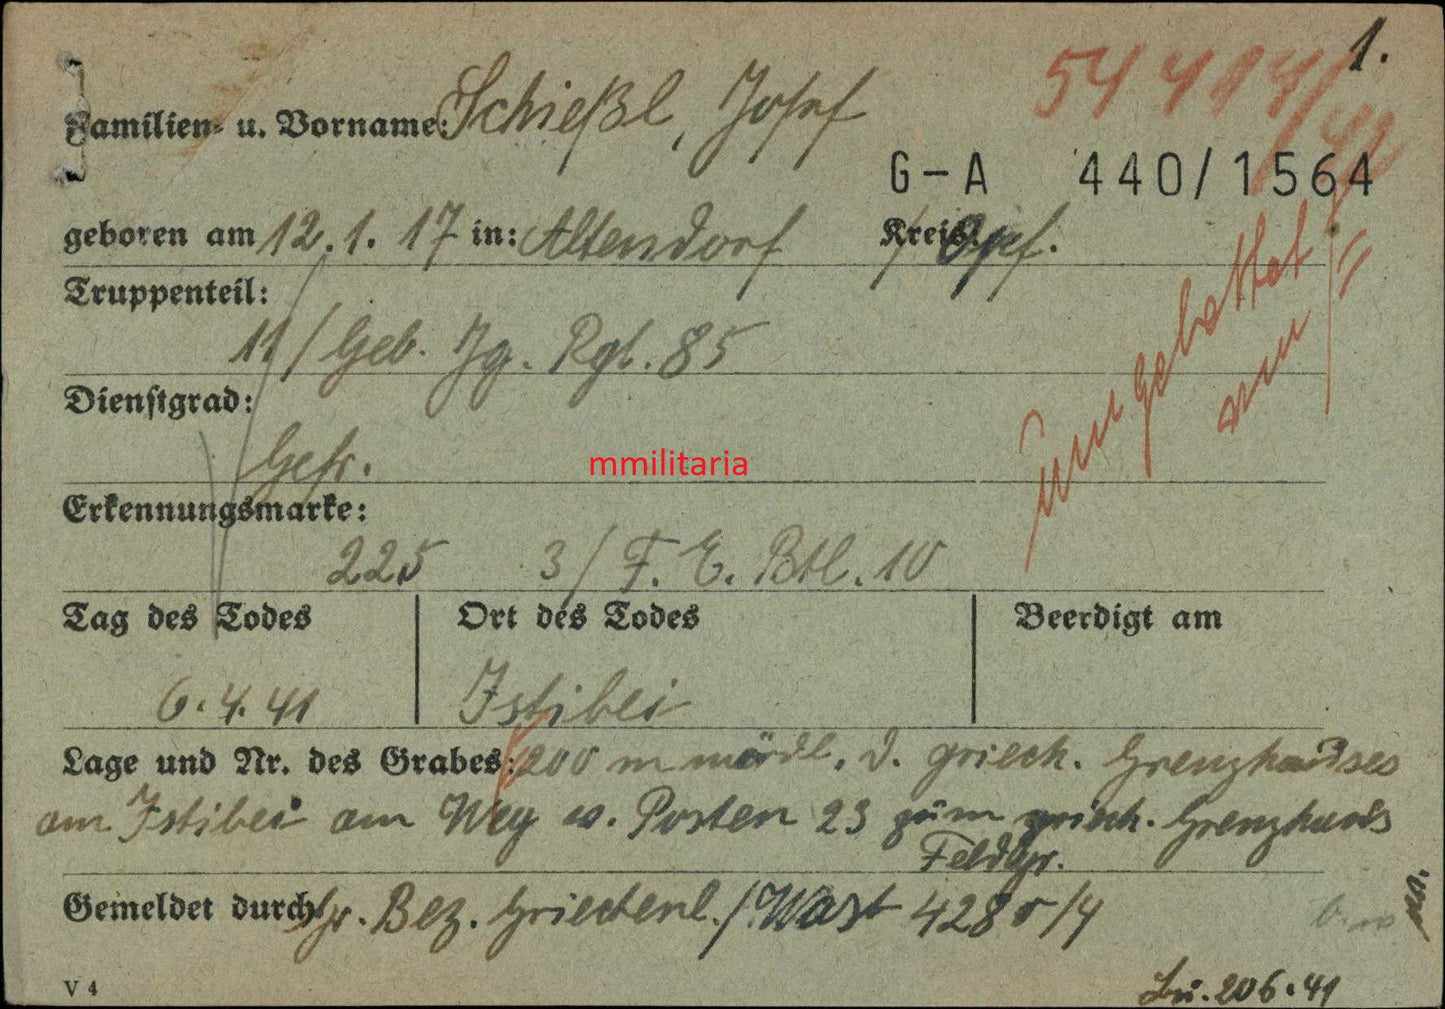 1.
54 414/42
Familien- u. Vorname: Schießl, Josef
G-A 440/1564
geboren am 12.1.17 in: Altendorf Kreis: /Opf.
Truppenteil:
11/Geb. Jg. Rgt. 85
Dienstgrad:
Gefr.
mmilitaria
Erkennungsmarke:
225 3/F. E. Btl. 10
Tag des Todes Ort des Todes Beerdigt am
6.4.41 Istibei
Lage und Nr. des Grabes: 200 m nördl. d. griech. Grenzhauses
am Istibei am Weg v. Posten 23 zum griech. Grenzhaus
Feldgr.
Gemeldet durch Gr. Bez. Griechenl./Wast 4280/4
umgebettet
V 4
206.41